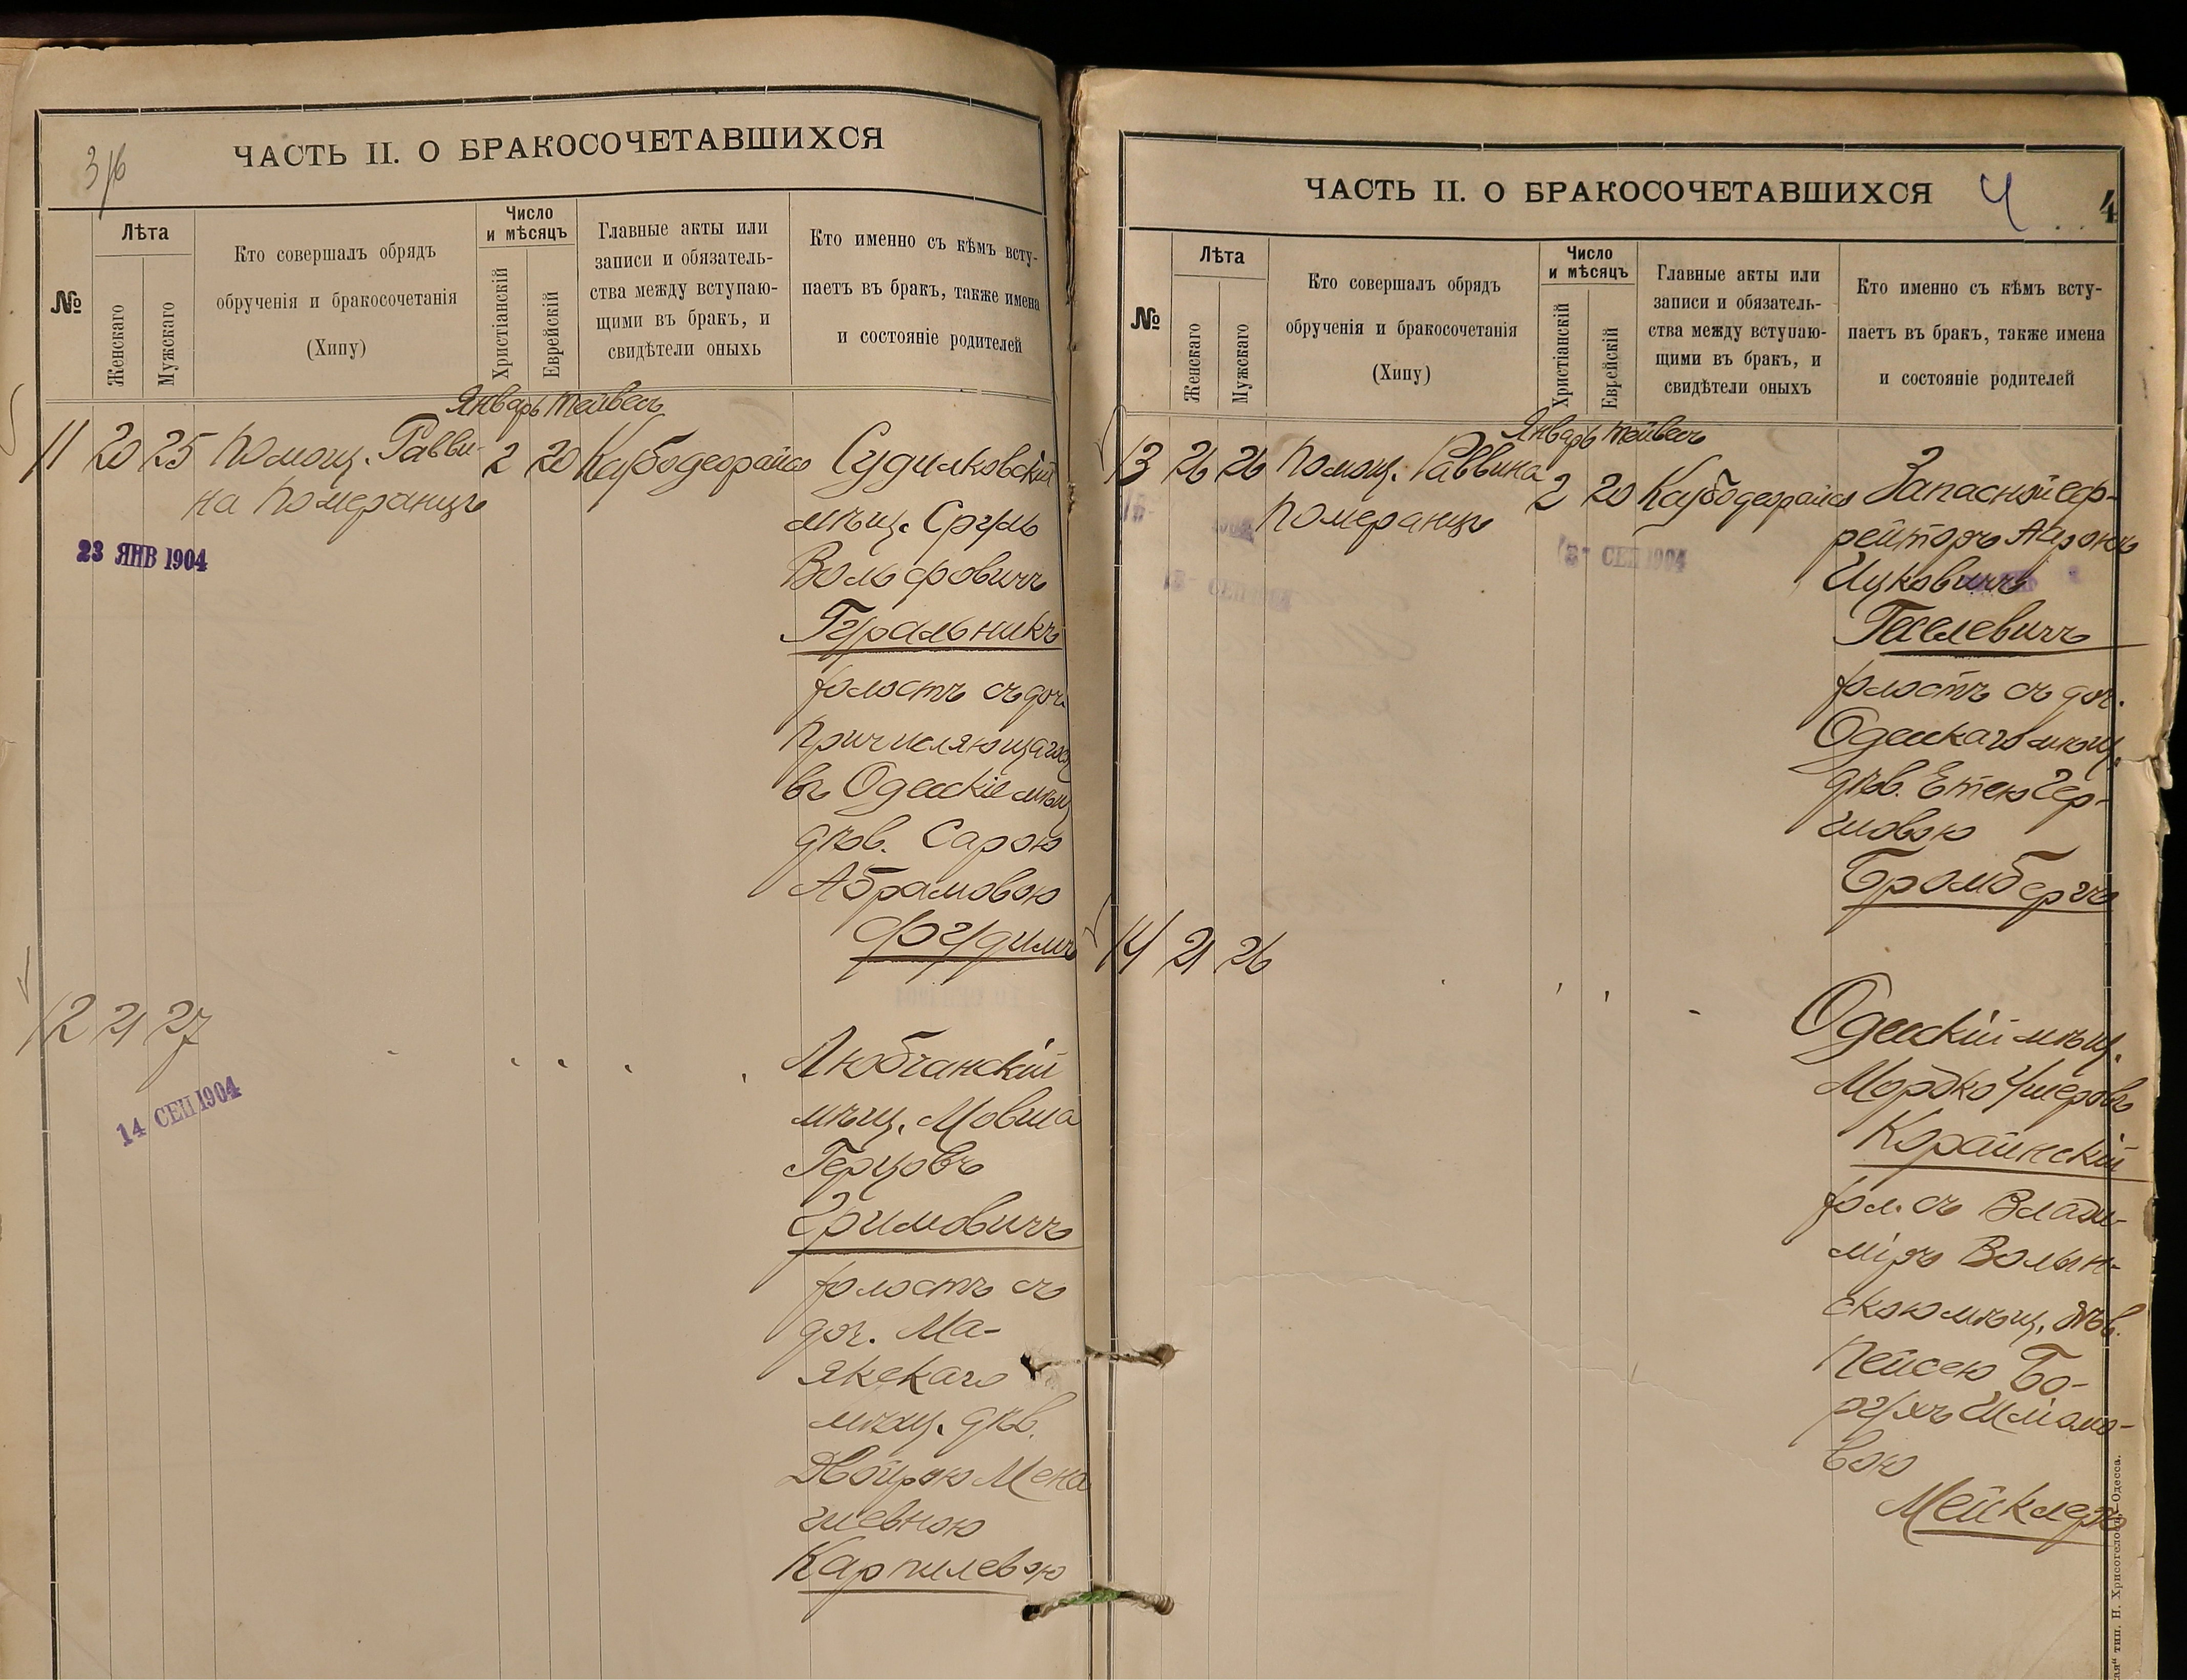 3/б
ЧАСТЬ II. О БРАКОСОЧЕТАВШИХСЯ
№
Лѣта
Женскаго
Мужскаго
Кто совершалъ обрядъ
обрученія и бракосочетанія
(Хипу)
Число
и мѣсяцъ
Христіанскій
Еврейскій
Главные акты или
записи и обязатель-
ства между вступаю-
щими въ бракъ, и
свидѣтели оныхъ
Кто именно съ кѣмъ всту-
паетъ въ бракъ, также имена
и состояніе родителей
Январь Тейвесъ
11 20 25 Помощ. Равви- 2 20
на Померанцъ
23 ЯНВ 1904
Судилковскій
мѣщ. Сруль
Вольфовичъ
Гуральникъ
холостъ съ доч.
причисляющагося
въ Одесскіе мѣщ
дѣв. Сарою
Абрамовою
Фудимъ
12 21 27
14 СЕП 1904
Любчанскій
мѣщ. Мовша
Герцовъ
Эримовичъ
холостъ съ
доч. Ма-
якскаго
мѣщ. дѣв.
Двойрою Мена
шевною
Карпилевою
ЧАСТЬ II. О БРАКОСОЧЕТАВШИХСЯ
4
4
№
Лѣта
Женскаго
Мужскаго
Кто совершалъ обрядъ
обрученія и бракосочетанія
(Хипу)
Число
и мѣсяцъ
Христіанскій
Еврейскій
Главные акты или
записи и обязатель-
ства между вступаю-
щими въ бракъ, и
свидѣтели оныхъ
Кто именно съ кѣмъ всту-
паетъ въ бракъ, также имена
и состояніе родителей
Январь Тейвесъ
13 26 26 Помощ. Раввина 2 20
Померанцъ
СЕП 1904
Запасной еф-
рейторъ Ааронъ
Ицковичъ
Геселевичъ
холостъ съ доч.
Одесскаго мѣщ.
дѣв. Етею Гер-
шовою
Бромбергъ
14 21 26
Одесскій мѣщ.
Мордко Ушеровъ
Корайнскій
хол. съ Влади-
міръ Волын-
скою мѣщ. дѣв.
Пейсею Бо-
рухъ Шліомо-
вою
Мейклеръ
тип. Н. Хрисогелосъ, Одесса.